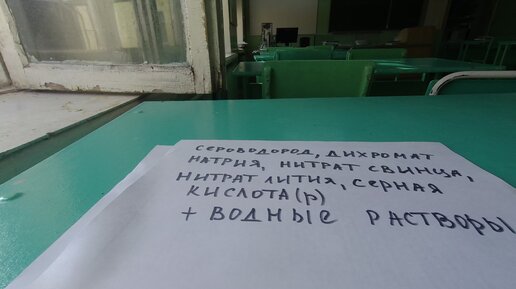 СЕРОВОДОРОД, ДИХРОМАТ
НАТРИЯ, НИТРАТ СВИНЦА,
НИТРАТ ЛИТИЯ, СЕРНАЯ
КИСЛОТА(р)
+ ВОДНЫЕ РАСТВОРЫ